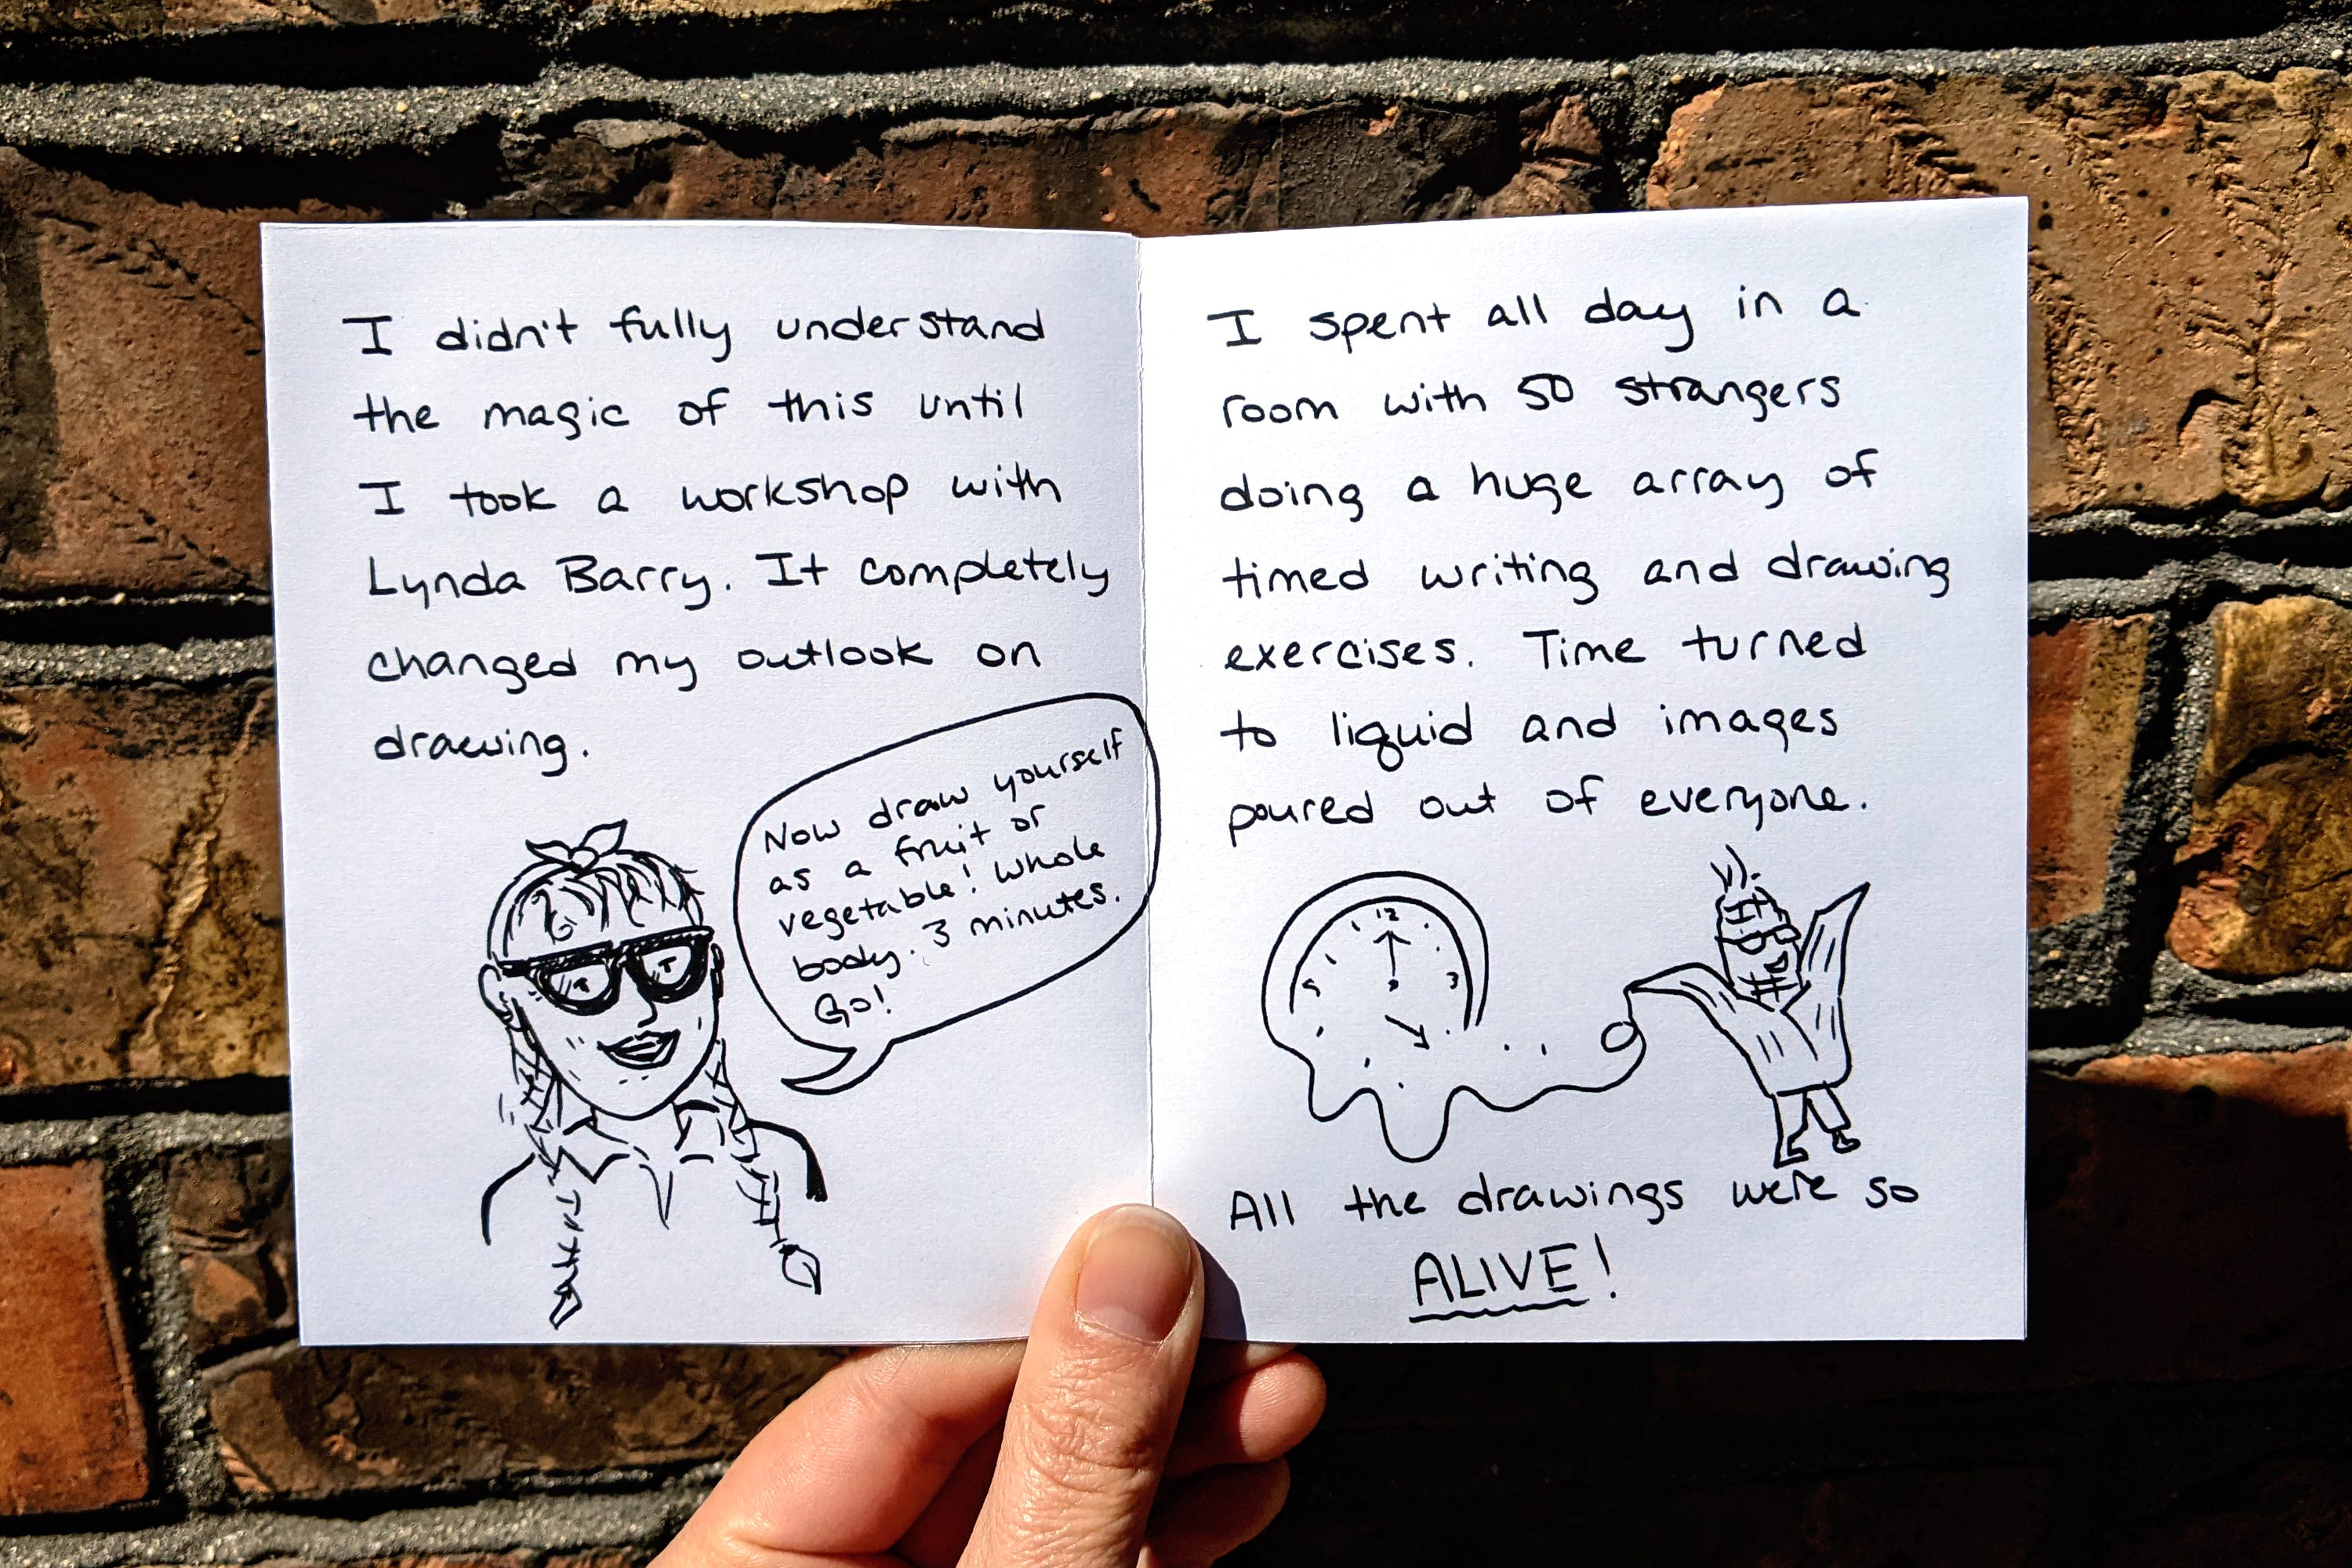 I didn't fully understand
the magic of this until
I took a workshop with
Lynda Barry. It completely
changed my outlook on
drawing.
Now draw yourself
as a fruit or
vegetable! Whole
body. 3 minutes.
Go!
I spent all day in a
room with 50 strangers
doing a huge array of
timed writing and drawing
exercises. Time turned
to liquid and images
poured out of everyone.
12
9
3
All the drawings were so
ALIVE!